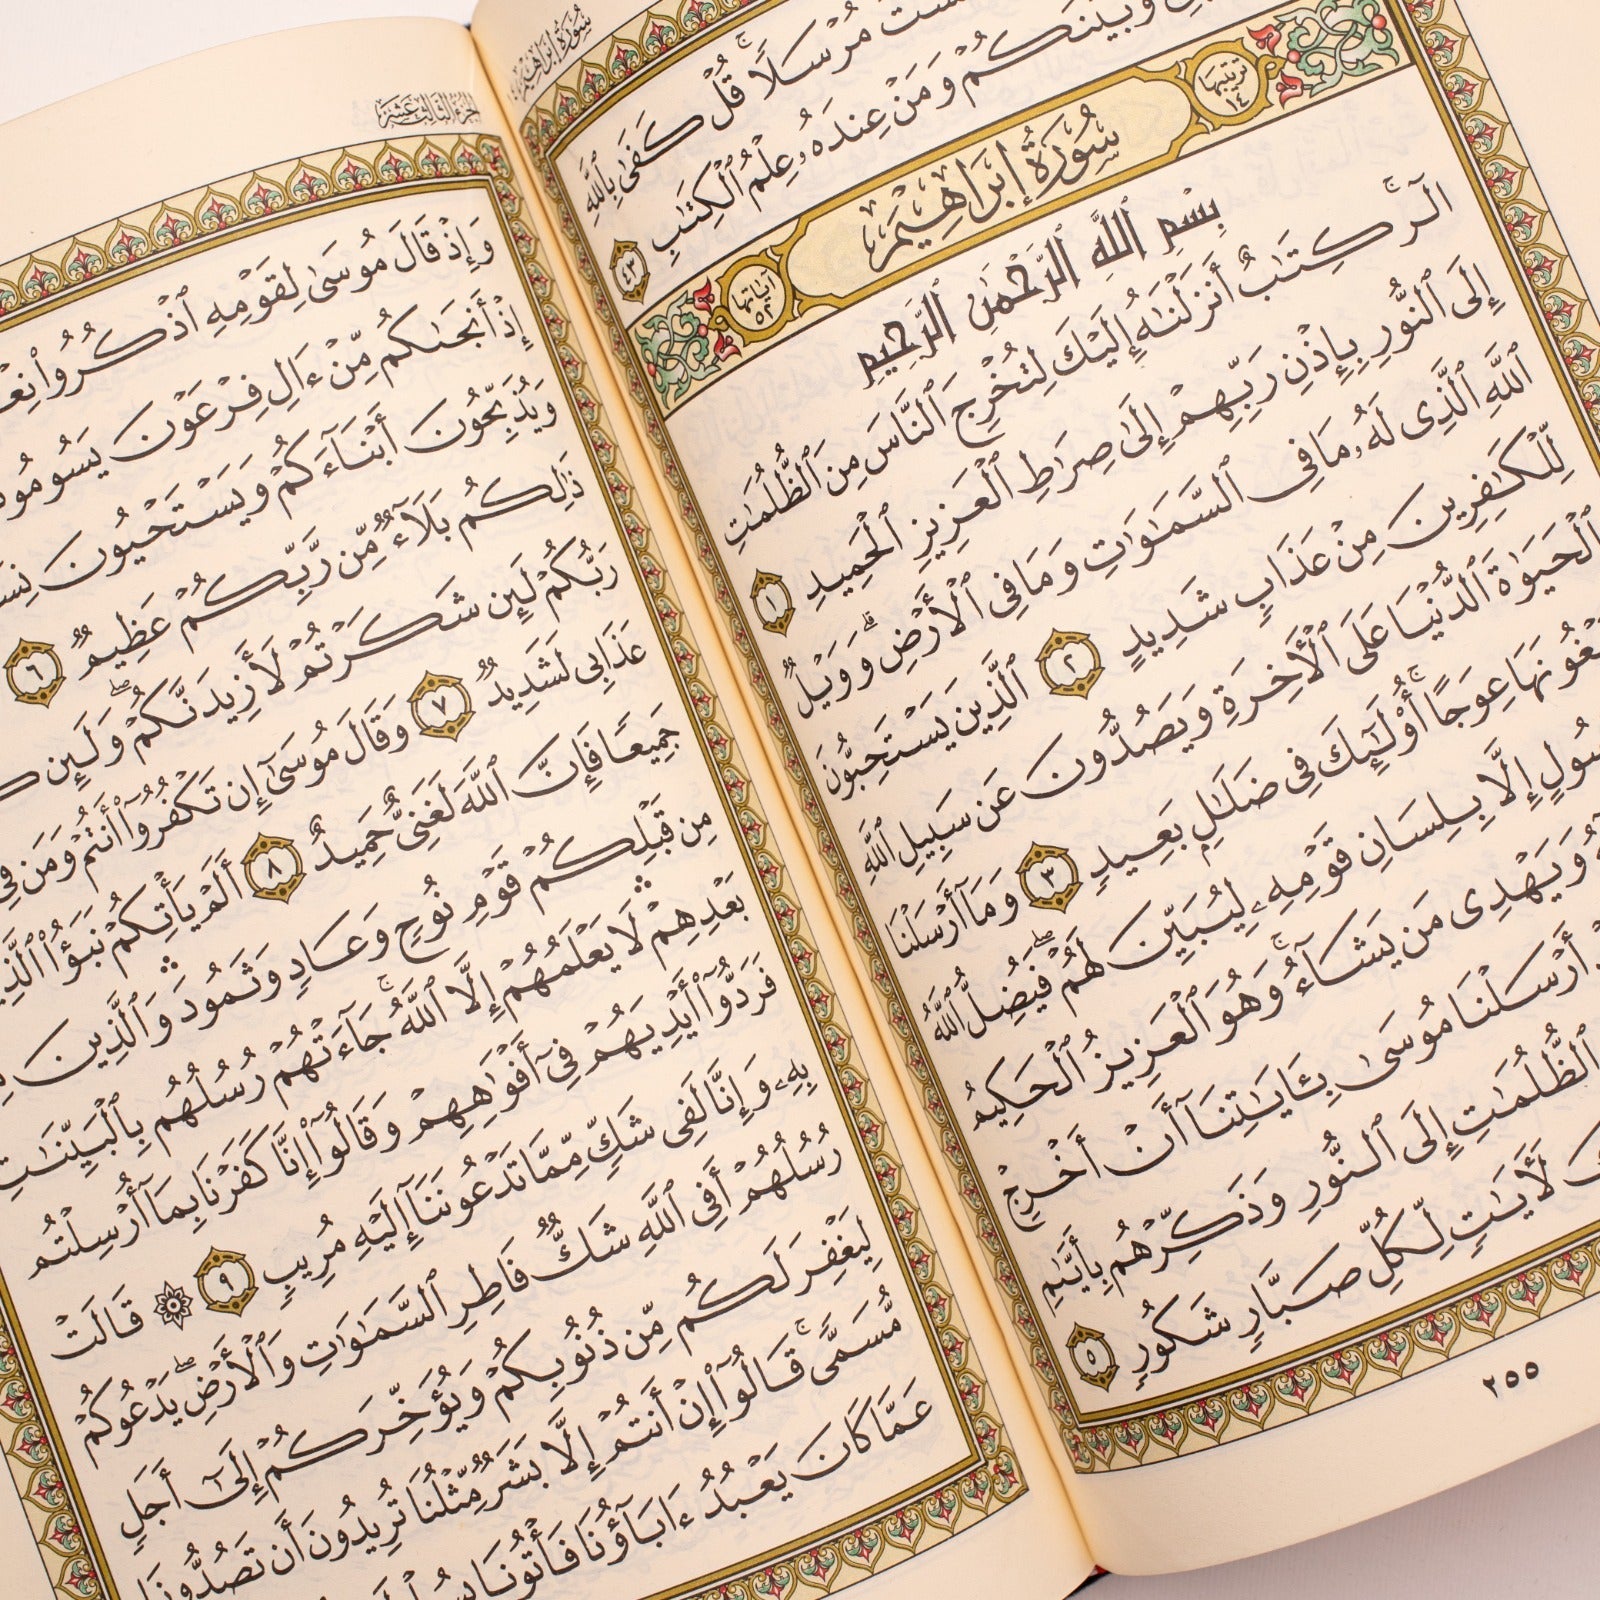 سُورَةُ إِبْرَاهِيمَ
مُرْسَلًا ۚ قُلْ كَفَىٰ بِٱللَّهِ
وَبَيْنَكُمْ وَمَنْ عِندَهُۥ عِلْمُ ٱلْكِتَٰبِ ٤٣
ترتيبها ١٤
سُورَةُ إِبْرَاهِيمَ
آياتها ٥٢
بِسْمِ ٱللَّهِ ٱلرَّحْمَٰنِ ٱلرَّحِيمِ
الٓر ۚ كِتَٰبٌ أَنزَلْنَٰهُ إِلَيْكَ لِتُخْرِجَ ٱلنَّاسَ مِنَ ٱلظُّلُمَٰتِ
إِلَى ٱلنُّورِ بِإِذْنِ رَبِّهِمْ إِلَىٰ صِرَٰطِ ٱلْعَزِيزِ ٱلْحَمِيدِ ١
ٱللَّهِ ٱلَّذِى لَهُۥ مَا فِى ٱلسَّمَٰوَٰتِ وَمَا فِى ٱلْأَرْضِ ۗ وَوَيْلٌ
لِّلْكَٰفِرِينَ مِنْ عَذَابٍ شَدِيدٍ ٢ ٱلَّذِينَ يَسْتَحِبُّونَ
ٱلْحَيَوٰةَ ٱلدُّنْيَا عَلَى ٱلْأَخِرَةِ وَيَصُدُّونَ عَن سَبِيلِ ٱللَّهِ
عِوَجًا ۚ أُو۟لَٰٓئِكَ فِى ضَلَٰلٍۭ بَعِيدٍ ٣ وَمَآ أَرْسَلْنَا
إِلَّا بِلِسَانِ قَوْمِهِۦ لِيُبَيِّنَ لَهُمْ ۖ فَيُضِلُّ ٱللَّهُ
وَيَهْدِى مَن يَشَآءُ ۚ وَهُوَ ٱلْعَزِيزُ ٱلْحَكِيمُ
أَرْسَلْنَا مُوسَىٰ بِـَٔايَٰتِنَآ أَنْ أَخْرِجْ
ٱلظُّلُمَٰتِ إِلَى ٱلنُّورِ وَذَكِّرْهُم بِأَيَّىٰمِ
لَأَيَٰتٍ لِّكُلِّ صَبَّارٍ شَكُورٍ ٥
٢٥٥
الجزء الثالث عشر
وَإِذْ قَالَ مُوسَىٰ لِقَوْمِهِ ٱذْكُرُوا۟
إِذْ أَنجَىٰكُم مِّنْ ءَالِ فِرْعَوْنَ
وَيُذَبِّحُونَ أَبْنَآءَكُمْ وَيَسْتَحْيُونَ
ذَٰلِكُم بَلَآءٌ مِّن رَّبِّكُمْ عَظِيمٌ ٦
رَبُّكُمْ لَئِن شَكَرْتُمْ لَأَزِيدَنَّكُمْ ۖ وَلَئِن
عَذَابِى لَشَدِيدٌ ٧ وَقَالَ مُوسَىٰٓ إِن تَكْفُرُوٓا۟ أَنتُمْ وَمَن فِى
جَمِيعًا فَإِنَّ ٱللَّهَ لَغَنِىٌّ حَمِيدٌ ٨ أَلَمْ يَأْتِكُمْ نَبَؤُا۟
مِن قَبْلِكُمْ قَوْمِ نُوحٍ وَعَادٍ وَثَمُودَ وَٱلَّذِينَ
بَعْدِهِمْ ۛ لَا يَعْلَمُهُمْ إِلَّا ٱللَّهُ ۚ جَآءَتْهُمْ رُسُلُهُم بِٱلْبَيِّنَٰتِ
فَرَدُّوٓا۟ أَيْدِيَهُمْ فِىٓ أَفْوَٰهِهِمْ وَقَالُوٓا۟ إِنَّا كَفَرْنَا بِمَآ أُرْسِلْتُم
بِهِۦ وَإِنَّا لَفِى شَكٍّ مِّمَّا تَدْعُونَنَآ إِلَيْهِ مُرِيبٍ ٩ ۞ قَالَتْ
رُسُلُهُمْ أَفِى ٱللَّهِ شَكٌّ فَاطِرِ ٱلسَّمَٰوَٰتِ وَٱلْأَرْضِ ۖ يَدْعُوكُمْ
لِيَغْفِرَ لَكُم مِّن ذُنُوبِكُمْ وَيُؤَخِّرَكُمْ إِلَىٰٓ أَجَلٍ
مُّسَمًّى ۚ قَالُوٓا۟ إِنْ أَنتُمْ إِلَّا بَشَرٌ مِّثْلُنَا تُرِيدُونَ أَن تَصُدُّونَا
عَمَّا كَانَ يَعْبُدُ ءَابَآؤُنَا فَأْتُونَا